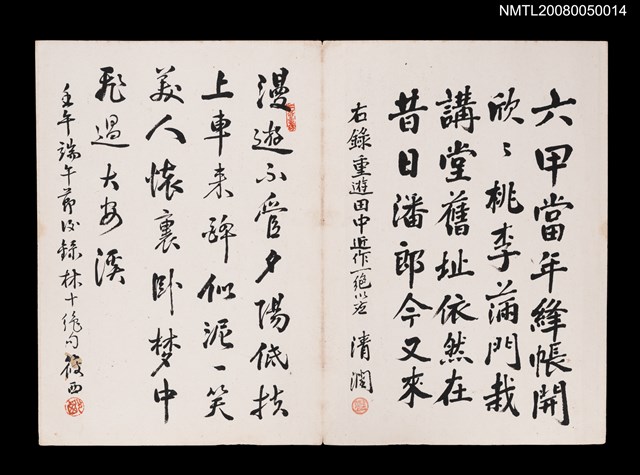 NMTL20080050014
六甲當年絳帳開
欣〻桃李滿門栽
講堂舊址依然在
昔日潘郎今又來
右錄重遊田中近作一絕以應 清潤
漫遊不管夕陽低扶
上車來醉似泥一笑
美人懷裏卧梦中
飛過大安溪
壬午端午節後錄林十絕句 筱西